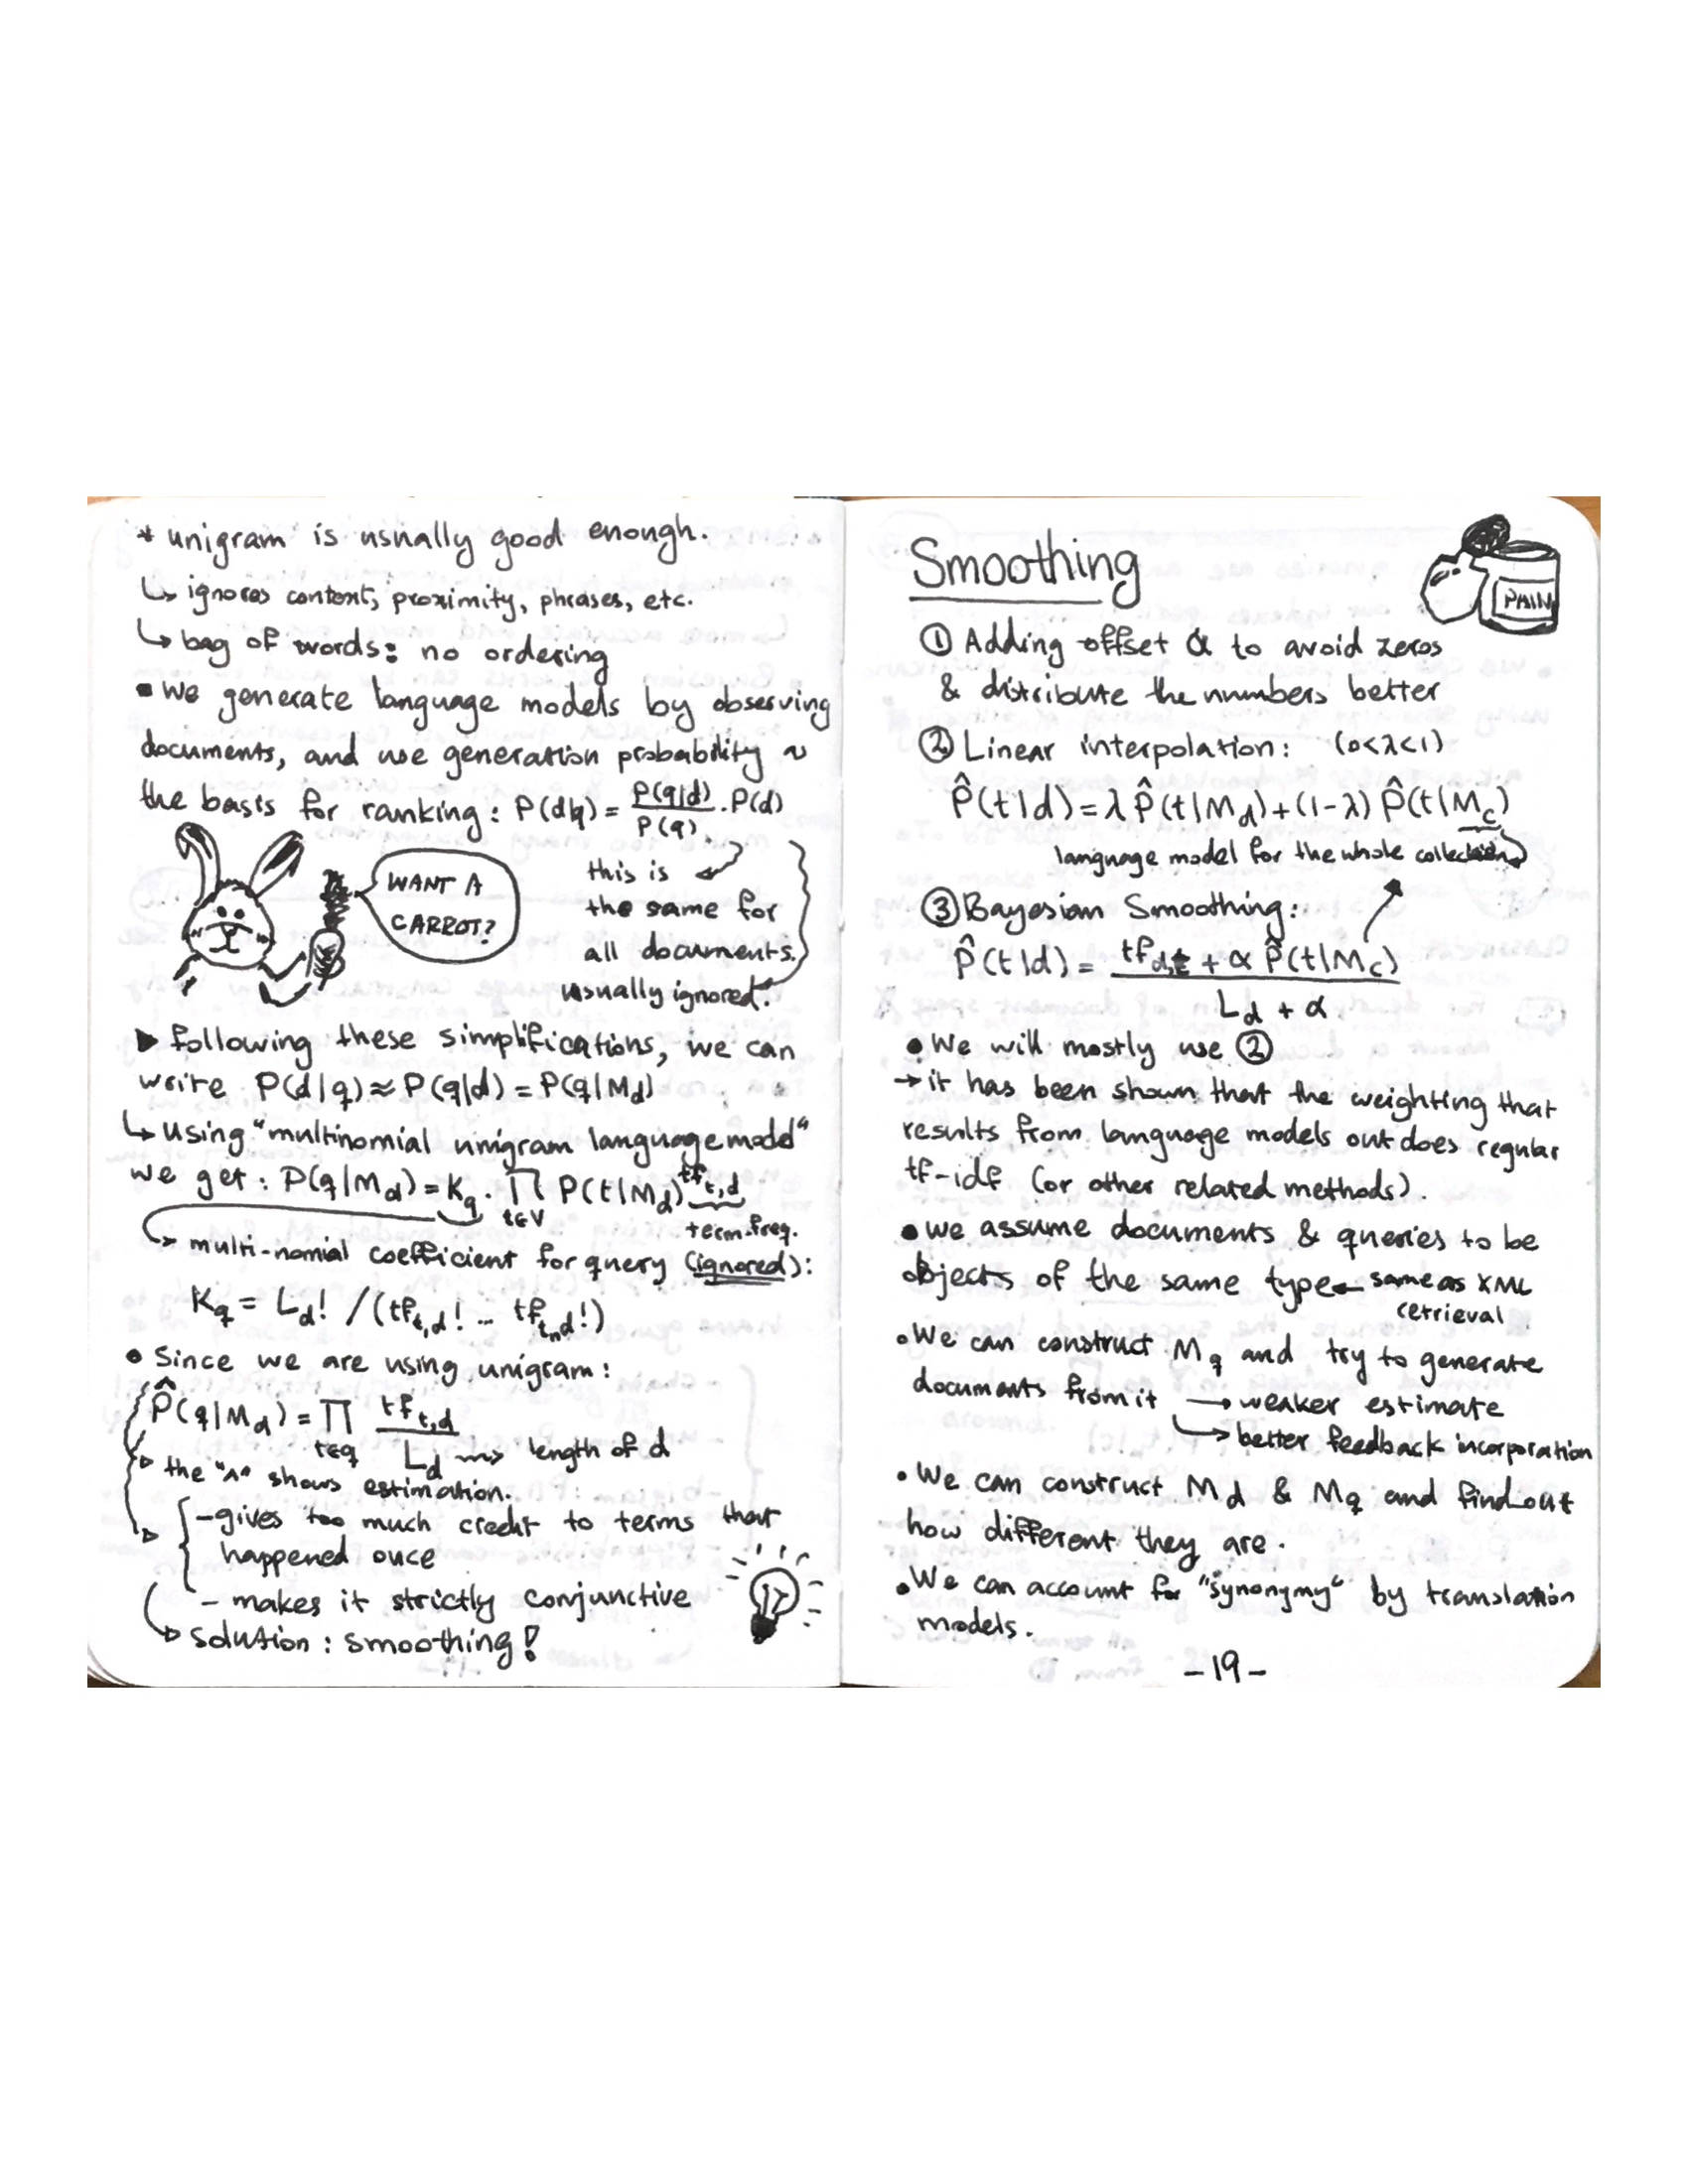 * unigram is usually good enough.
↳ ignores context, proximity, phrases, etc.
↳ bag of words: no ordering
• We generate language models by observing
documents, and use generation probability ~
the basis for ranking: P(d|q) = P(q|d)/P(q) . P(d)
WANT A
CARROT?
this is
the same for
all documents.
usually ignored.
▶ following these simplifications, we can
write P(d|q) ≈ P(q|d) = P(q|Md)
↳ Using "multinomial unigram language model"
we get: P(q|Md) = Kq . ∏ t∈V P(t|Md)^tf t,d
term freq.
↳ multi-nomial coefficient for query (ignored):
Kq = Ld! / (tf t,d! -- tf tn d!)
• Since we are using unigram:
P̂(q|Md) = ∏ t∈q tf t,d / Ld ⇝ length of d
▹ the "^" shows estimation.
▹ { - gives too much credit to terms that
happened once
- makes it strictly conjunctive
↳ Solution: smoothing!
Smoothing
PAIN
① Adding offset α to avoid zeros
& distribute the numbers better
② Linear interpolation: (0<λ<1)
P̂(t|d) = λ P̂(t|Md) + (1-λ) P̂(t|Mc)
language model for the whole collection
③ Bayesian Smoothing:
P̂(t|d) = tf d,t + α P̂(t|Mc) / Ld + α
• We will mostly use ②
→ it has been shown that the weighting that
results from language models outdoes regular
tf-idf (or other related methods).
• we assume documents & queries to be
objects of the same type ← same as XML
retrieval
• We can construct Mq and try to generate
documents from it → weaker estimate
↳ better feedback incorporation
• We can construct Md & Mq and find out
how different they are.
• We can account for "synonymy" by translation
models.
-19-